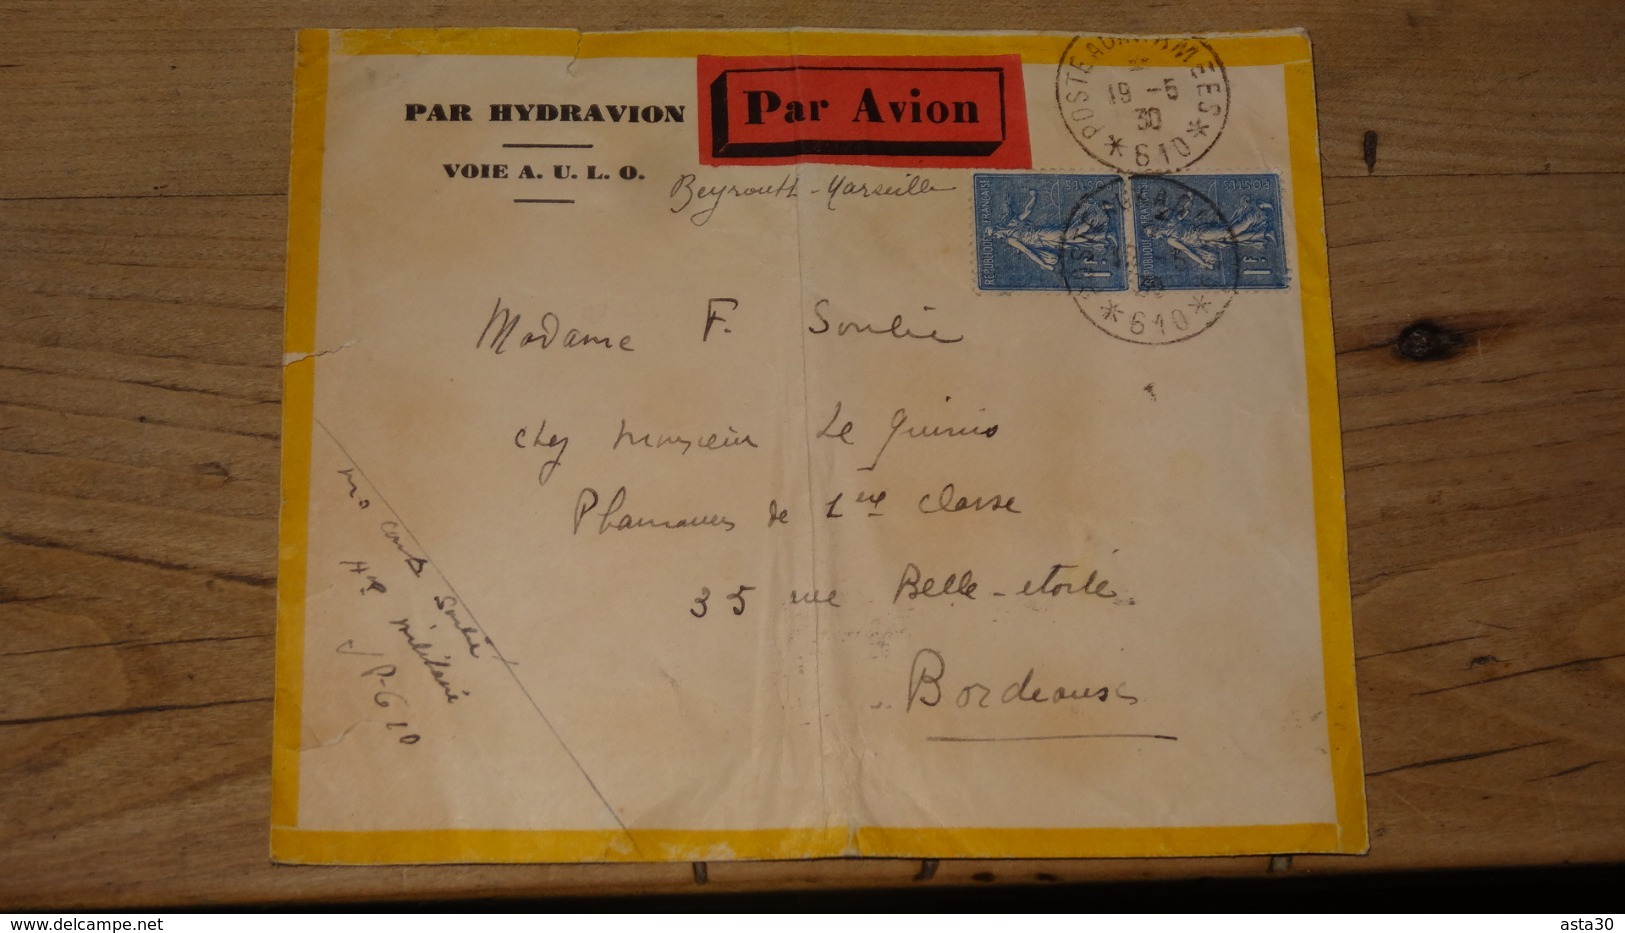 PAR HYDRAVION
VOIE A. U. L. O.
Par Avion
Beyrouth - Marseille
POSTE AUX ARMEES
19 - 5
30
* 610 *
REPUBLIQUE FRANÇAISE
POSTES
1F.
REPUBLIQUE FRANÇAISE
POSTES
1F.
* 610 *
Madame F. Soulié
chez Monsieur Le Quinio
Pharmacien de 1ère classe
35 rue Belle-étoile
Bordeaux
Soulié
militaire
SP-610
delcampe.net
asta30